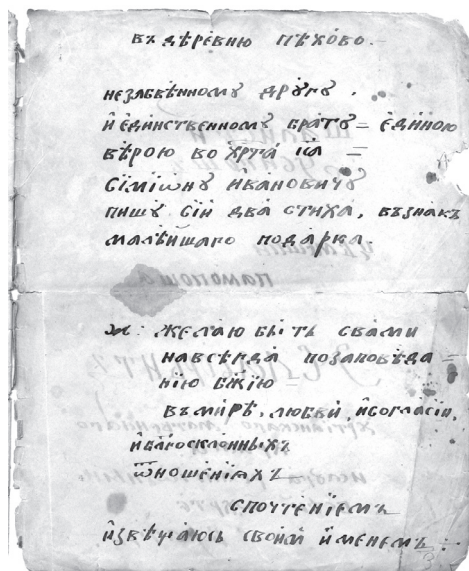 въ дѣревню пѣхово.
незабвѣнному дрꙋгꙋ,
и҆ є҆динственному братꙋ = є҆диною
вѣрою во хр҃та і҃са =
Сі́міѡнꙋ и҆вановичꙋ
пишꙋ сій два стиха, възнакъ
малѣйшаго подарка.
желаю быть свами
навсѣгда позаповѣда =
нію бж҃ію =
въмирѣ, любви, и҆согласіи,
и҆благосклонныхъ
ѿношеніяхъ
спочтеніемъ
и҆звѣщаюсь своимъ и҆менемъ :